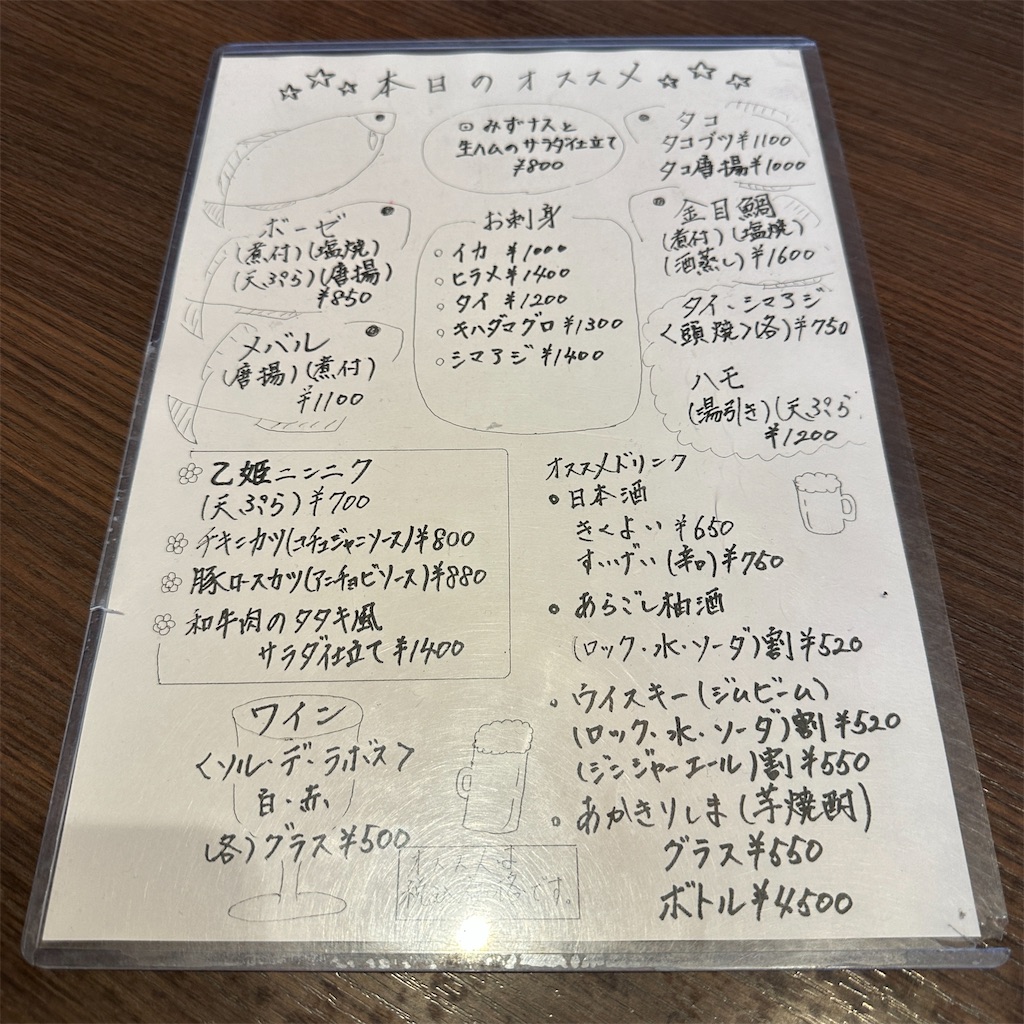 本日のオススメ
みずナスと
生ハムのサラダ仕立て
¥800
タコ
タコブツ¥1100
タコ唐揚¥1000
ボーゼ
(煮付)(塩焼)
(天ぷら)(唐揚)
¥850
お刺身
イカ ¥1000
ヒラメ¥1400
タイ ¥1200
キハダマグロ¥1300
シマアジ¥1400
金目鯛
(煮付)(塩焼)
(酒蒸し)¥1600
メバル
(唐揚)(煮付)
¥1100
タイ、シマアジ
<頭焼>(各)¥750
ハモ
(湯引き)(天ぷら
¥1200
乙姫ニンニク
(天ぷら)¥700
チキンカツ(コチュジャンソース)¥800
豚ロースカツ(アンチョビソース)¥880
和牛肉のタタキ風
サラダ仕立て¥1400
オススメドリンク
日本酒
きくよい ¥650
すいげい(辛口)¥750
あらごし柚酒
(ロック・水・ソーダ)割¥520
ウイスキー(ジムビーム)
(ロック・水・ソーダ)割¥520
(ジンジャーエール)割¥550
あかきりしま(芋焼酎)
グラス¥550
ボトル¥4500
ワイン
<ソル・デ・ラボス>
白・赤
(各)グラス¥500
です。